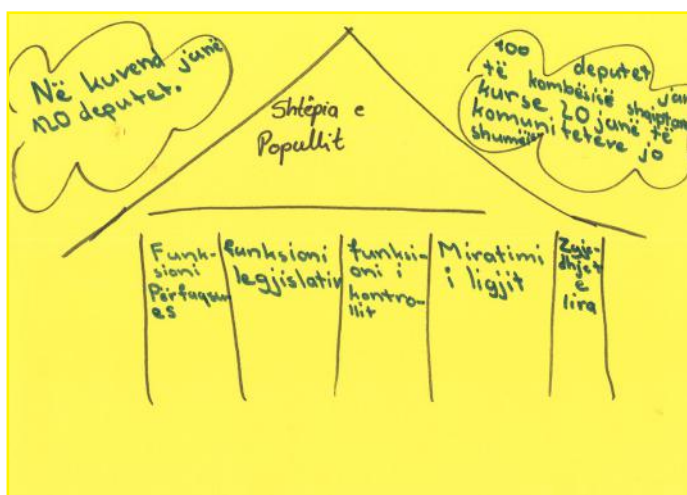 Në kuvend janë
120 deputet.
100 deputet jan
të kombësisë shqiptare
kurse 20 janë të
komuniteteve jo
shumicë
Shtëpia e
Popullit
Funk-
sioni
Përfaqsur
es
Funksioni
legjislativ
funksi-
oni i
kontro-
llit
Miratimi
i ligjit
Zgje-
dhjet
e
lira